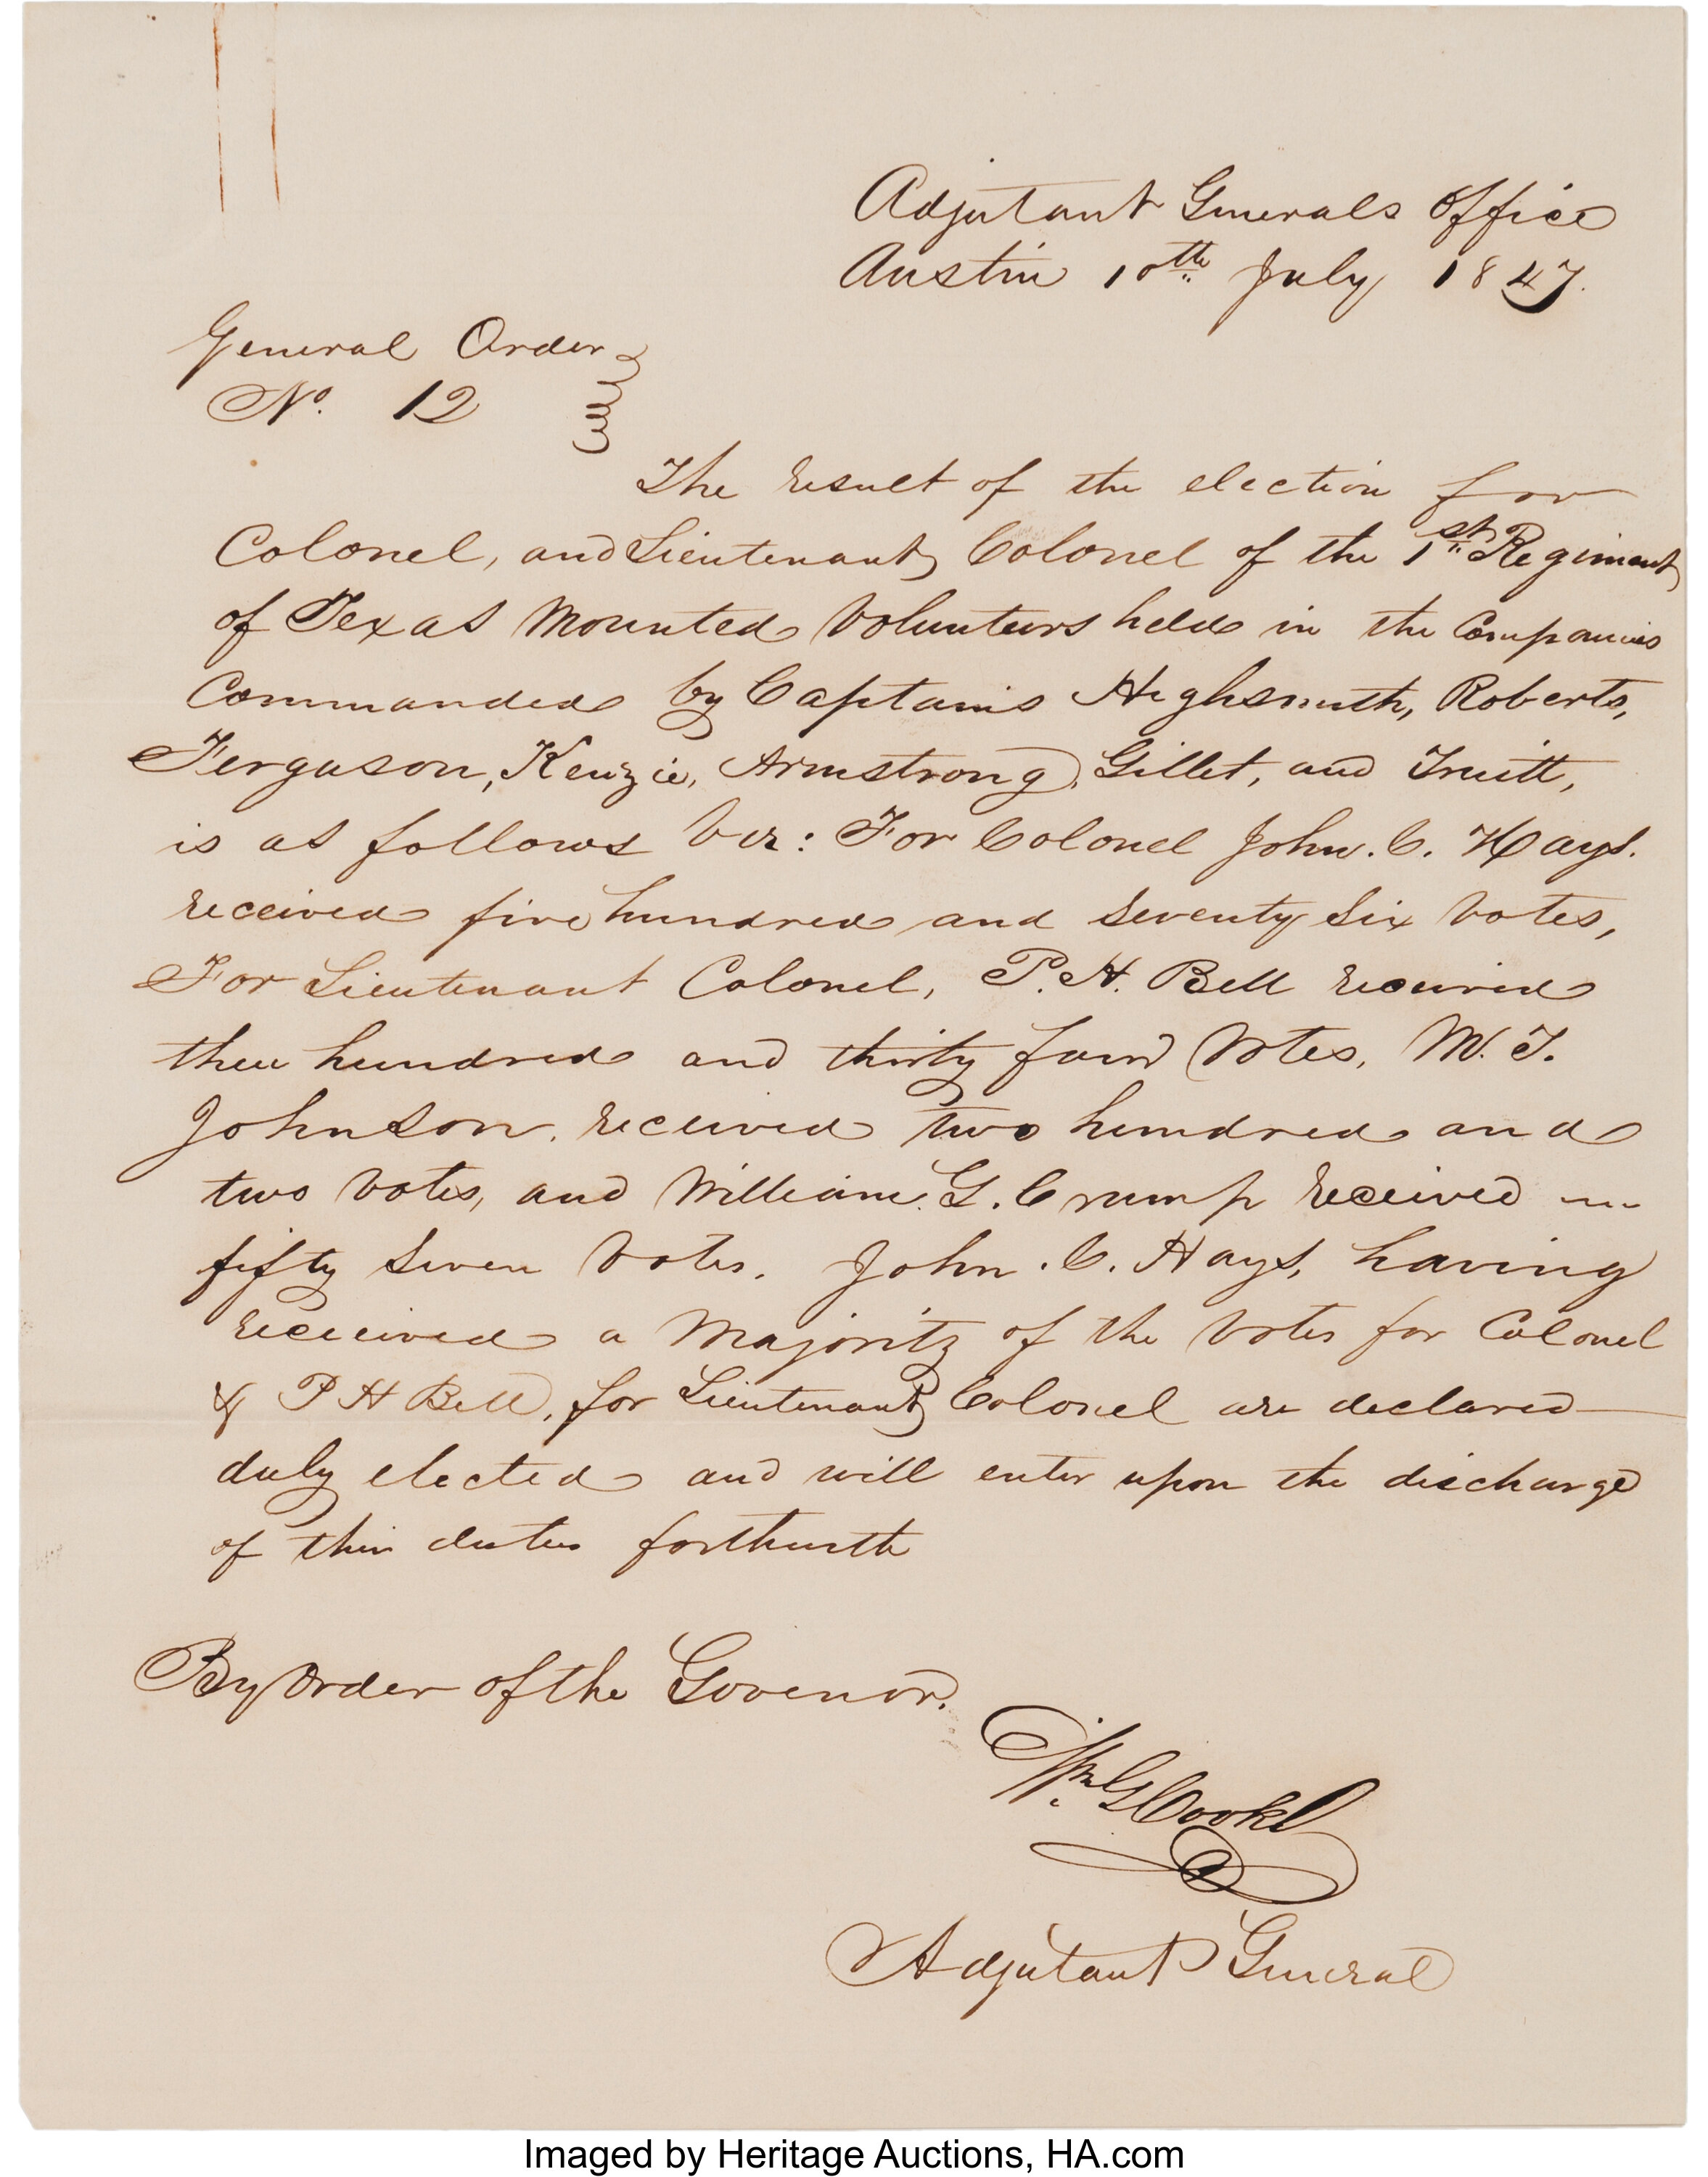 Adjutant Generals Office
Austin 10th July 1847.
General Order
No. 12
The result of the election for
Colonel, and Lieutenant Colonel of the 1st Regiment
of Texas Mounted Volunteers held in the Companies
Commanded by Captains Highsmith, Roberts,
Ferguson, Kenzie, Armstrong, Gillet, and Truitt,
is as follows Viz: For Colonel John. C. Hays.
received five hundred and seventy six votes,
For Lieutenant Colonel, P. H. Bell received
three hundred and thirty four votes, M. T.
Johnson, received two hundred and
two votes, and William. G. Crump received
fifty seven votes. John. C. Hays, having
received a majority of the votes for Colonel
& P H Bell, for Lieutenant Colonel are declared
duly elected and will enter upon the discharge
of their duties forthwith
By order of the Govenor.
Wm. G Cooke
Adjutant General
Imaged by Heritage Auctions, HA.com